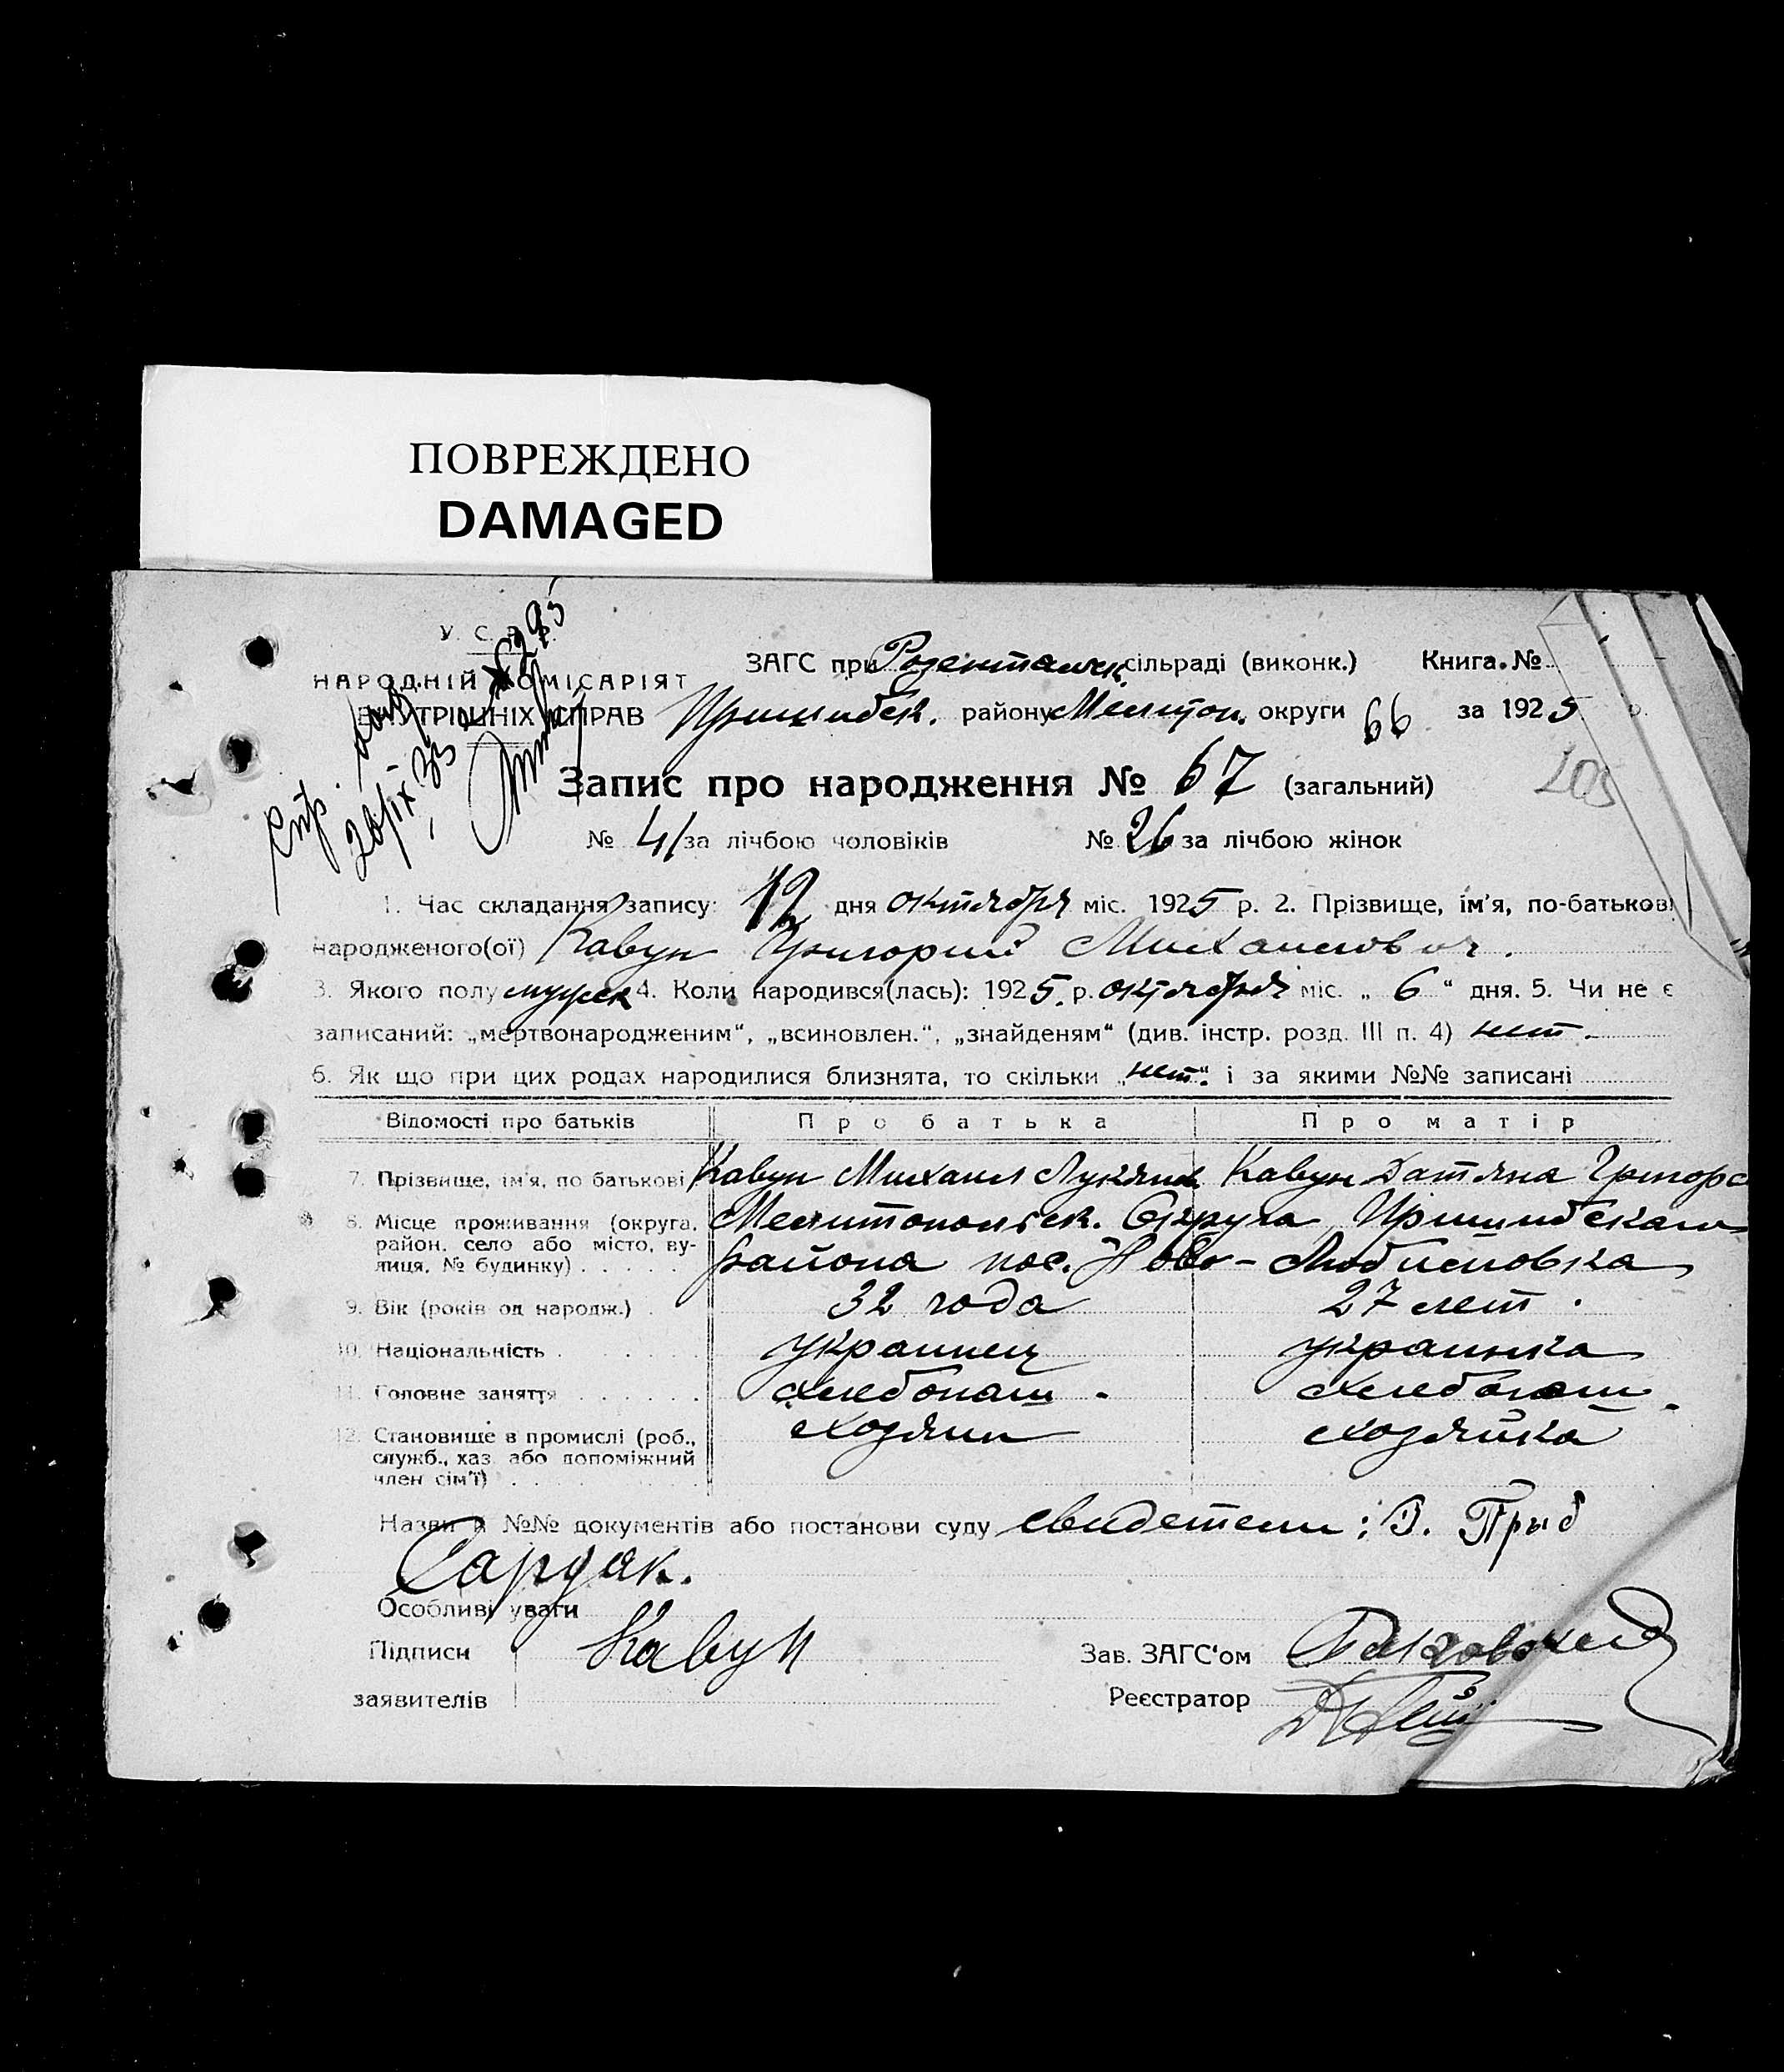 ПОВРЕЖДЕНО
DAMAGED
У. С. Р. Р.
НАРОДНІЙ КОМІСАРІЯТ
ВНУТРІШНІХ СПРАВ
ЗАГС при Розентальск. сільраді (виконк.) Книга №
Пришибск. району Мелитоп. округи 66 за 1925 р.
205
Запис про народження № 67 (загальний)
№ 41 за лічбою чоловіків № 26 за лічбою жінок
1. Час складання запису: 12 дня октября міс. 1925 р. 2. Прізвище, ім'я, по-батькові
народженого(ої) Кавун Григорий Михайлович.
3. Якого полу мужск 4. Коли народився(лась): 1925 р. октября міс. „ 6 “ дня. 5. Чи не є
записаний: „мертвонародженим“, „всиновлен.“, „знайденям“ (див. інстр. розд. III п. 4) нет.
6. Як що при цих родах народилися близнята, то скільки „нет“ і за якими №№ записані
Відомості про батьків Про батька Про матір
7. Прізвище, ім'я, по батькові Кавун Михаил Лукьян. Кавун Татьяна Григорс
8. Місце проживання (округа, район, село або місто, вулиця, № будинку) Мелитопольск. Округа Пришибскаго
района пос. Ново-Любимовка
9. Вік (років од народж.) 32 года 27 лет.
10. Національність украинец украинка
11. Головне заняття хлебопаш. хлебопаш.
12. Становище в промислі (роб., служб., хаз. або допоміжний член сім'ї) хозяин хозяйка
Назви й №№ документів або постанови суду свидетели: Прыб
Сардак.
Особливі уваги
Підписи Кавун Зав. ЗАГС'ом
заявителів Реєстратор